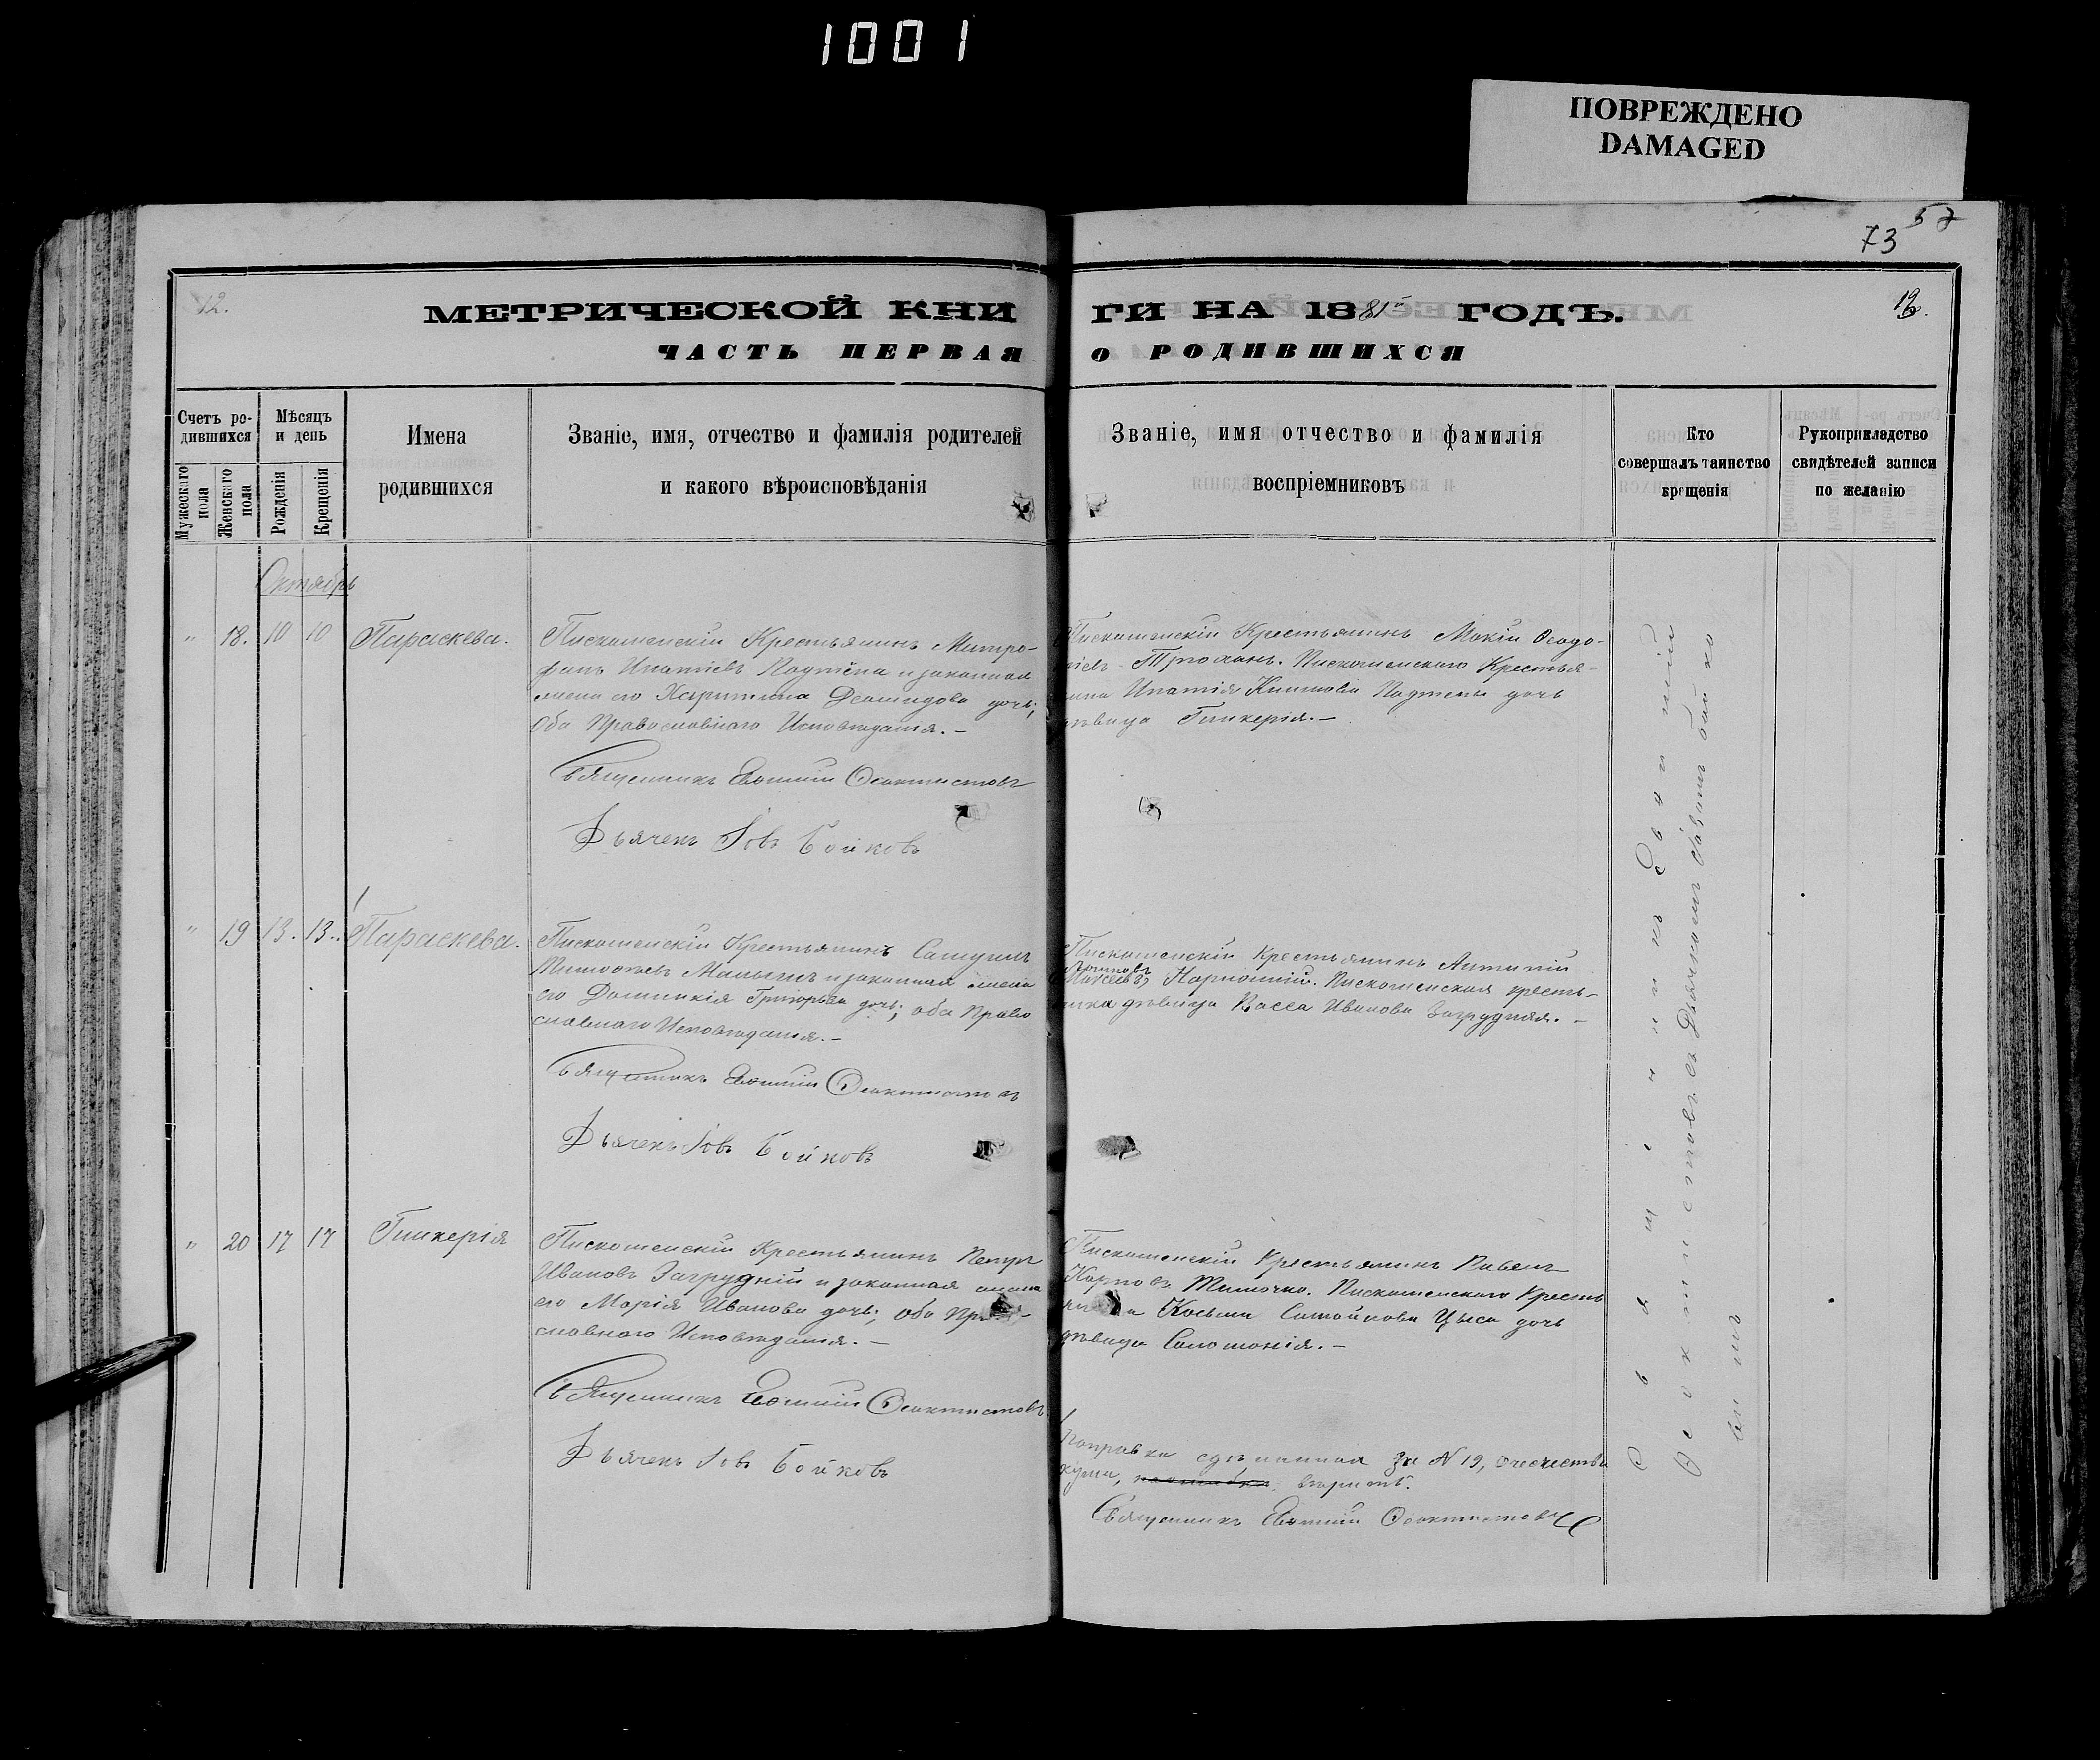 1001
ПОВРЕЖДЕНО
DAMAGED
57
73
12.
МЕТРИЧЕСКОЙ КНИ
ГИ НА 1881й ГОДЪ.
ЧАСТЬ ПЕРВАЯ
О РОДИВШИХСЯ
Счетъ ро-
дившихся
Мужескаго пола
Женскаго пола
Мѣсяцъ
и день
Рожденія
Крещенія
Имена
родившихся
Званіе, имя, отчество и фамилія родителей
и какого вѣроисповѣданія
Званіе, имя отчество и фамилія
воспріемниковъ
Кто
совершалъ таинство
крещенія
Рукоприкладство
свидѣтелей записи
по желанію
Октябрь
" 18. 10 10 Параскева.
Пискошенскій Крестьянинъ Митро-
фанъ Ипатіевъ и законная
жена его Харитина Демидова дочь;
Оба Православнаго Исповѣданія.-
Священникъ Евфимій Феоктистовъ
Дьячекъ Іовъ Бойковъ
Пискошенскій Крестьянинъ Мокій Феодо-
Троханъ. Пискошенскаго Крестья-
нина Ипатія дочь
дѣвица Гликерія.-
" 19 13. 13. Параскева.
Пискошенскій Крестьянинъ Самуилъ
Тимофѣевъ и законная жена
его Домникія Григорьева дочь; оба Право
славнаго Исповѣданія.-
Священникъ Евфимій Феоктистовъ
Дьячекъ Іовъ Бойковъ
Пискошенскій Крестьянинъ Антипій
Пискошенская кресть-
янка дѣвица Васса Иванова Загрудняя.-
" 20 17 17 Гликерія
Пискошенскій Крестьянинъ Петръ
Ивановъ Загрудній и законная жена
его Марія Иванова дочь; оба Пра
славнаго Исповѣданія.-
Священникъ Евфимій Феоктистовъ
Дьячекъ Іовъ Бойковъ
Пискошенскій Крестьянинъ Павелъ
Карповъ Тимочко. Пискошенскаго Кресть
Косьмы Самойлова Цыса дочь
дѣвица Соломонія.-
Поправка сдѣланная за N 19, отечества
кума, вѣрна.
Священникъ Евфимій Феоктистовъ
Священникъ Евфимій
Феоктистовъ съ Дьячкомъ Іовомъ Бойко
вымъ